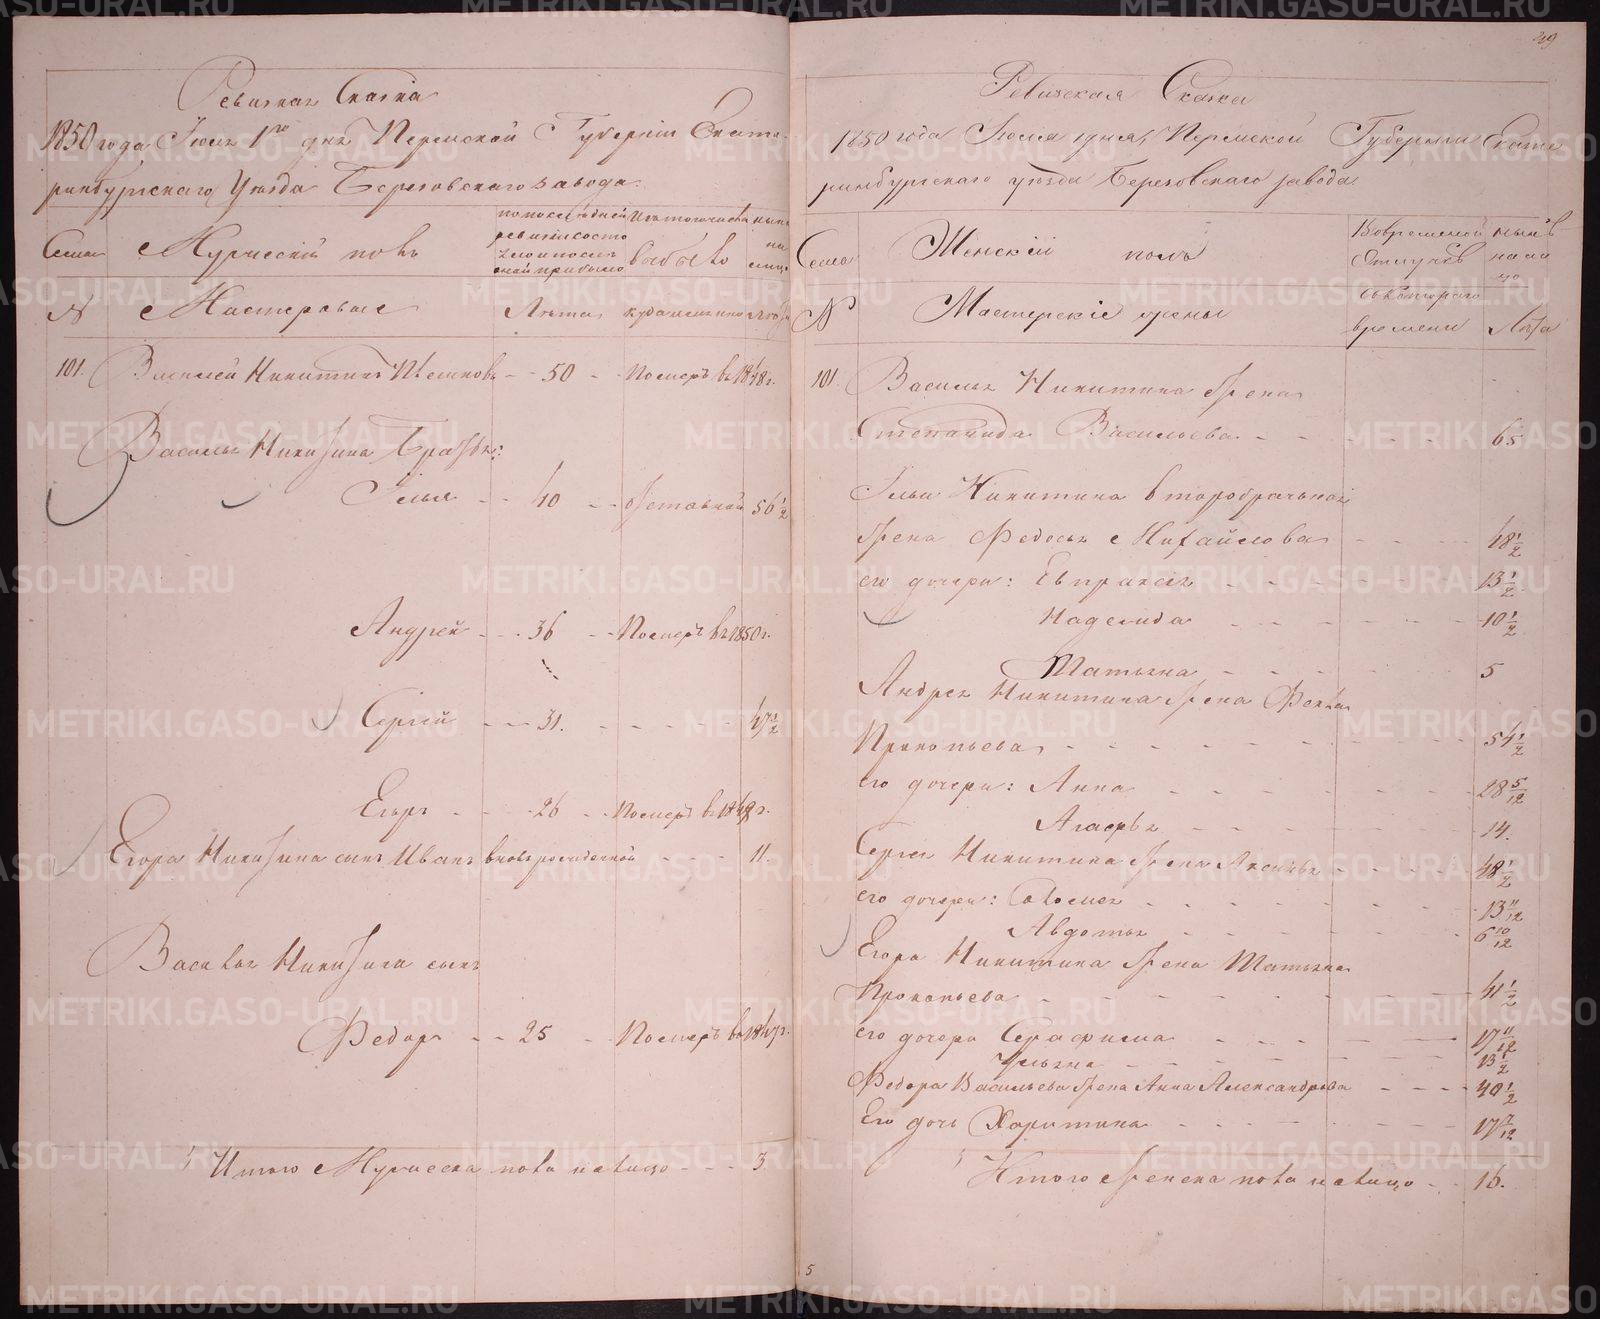 Ревизкая Сказка
1850 года Июля 1го дня Пермской Губернии Екате-
ринбургскаго Уѣзда Березовскаго завода.
Семьи
Мужескій полъ
по последней ревизіи состояло и после оной прибыло
Изъ того числа выбыло
ныне на лицо
№
Мастеровые
Лѣта
куда именно
Лѣта
101. Василей Никитинъ - - 50 - Померъ въ 1848 г.
Василья Никитина братья:
Илья - - 40 - - отставной 56 1/2
Андрей - - - 36 - - Померъ въ 1850 г.
Сергѣй - - - 31. - - - - - 47 1/2
Егоръ - - - 26 - - Померъ въ 1848 г.
Егора Никитина сынъ Иванъ вновь рожденной - - - - 11.
Василья Никитина сынъ
Федоръ - - 25 - Померъ въ
Итого Мужеска пола на лицо - - - 3.
49
Ревизская Сказка
1850 года Июля 1 дня, Пермской Губернии Екате
ринбургскаго уѣзда Березовскаго завода
Семьи
Женскій полъ
Во временной отлучкѣ
нынѣ на ли цо
№
Мастерскіе жены
съ котораго времени
Лѣта
101. Василья Никитина жена
Степанида Васильева - - - - - - 65
Ильи Никитина второбрачьная
жена Федосья Михайлова - - - - 48 1/2
его дочери: Евпраксія - - - - - - 13 1/2
Надежда - - - - - - 10 1/2
Татьяна - - - - - 5
Андрея Никитина жена Фекла
Прокопьева - - - - - - - - - - - 54 1/2
его дочери: Анна - - - - - - - 28 5/12
Агафья - - - - - - - - 14.
Сергея Никитина жена Аксинья - - - - 48 1/2
его дочери: Соломея - - - - - - - - 13 11/12
Авдотья - - - - - - - - 6 10/12
Егора Никитина жена Татьяна
Прокопьева - - - - - - - - - - 41 1/2
его дочери Серафима - - - - - - 17 11/12
Ульяна - - - - - - - 13 1/2
Федора Васильева жена Анна Александрова - - - - 40 1/2
Его дочь Харитина - - - - - - - - 17 7/12
Итого Женска пола на лицо - - 16.
5
METRIKI.GASO-URAL.RU